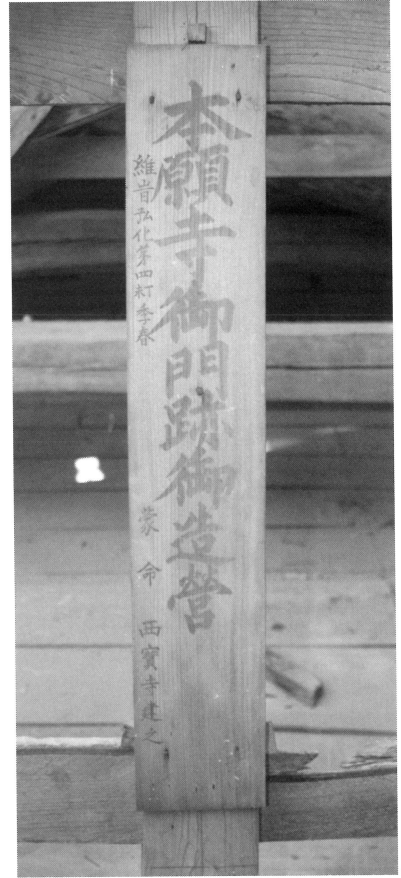 本願寺御門跡御造営
維旹弘化第四丁季春
蒙命 西寳寺建之